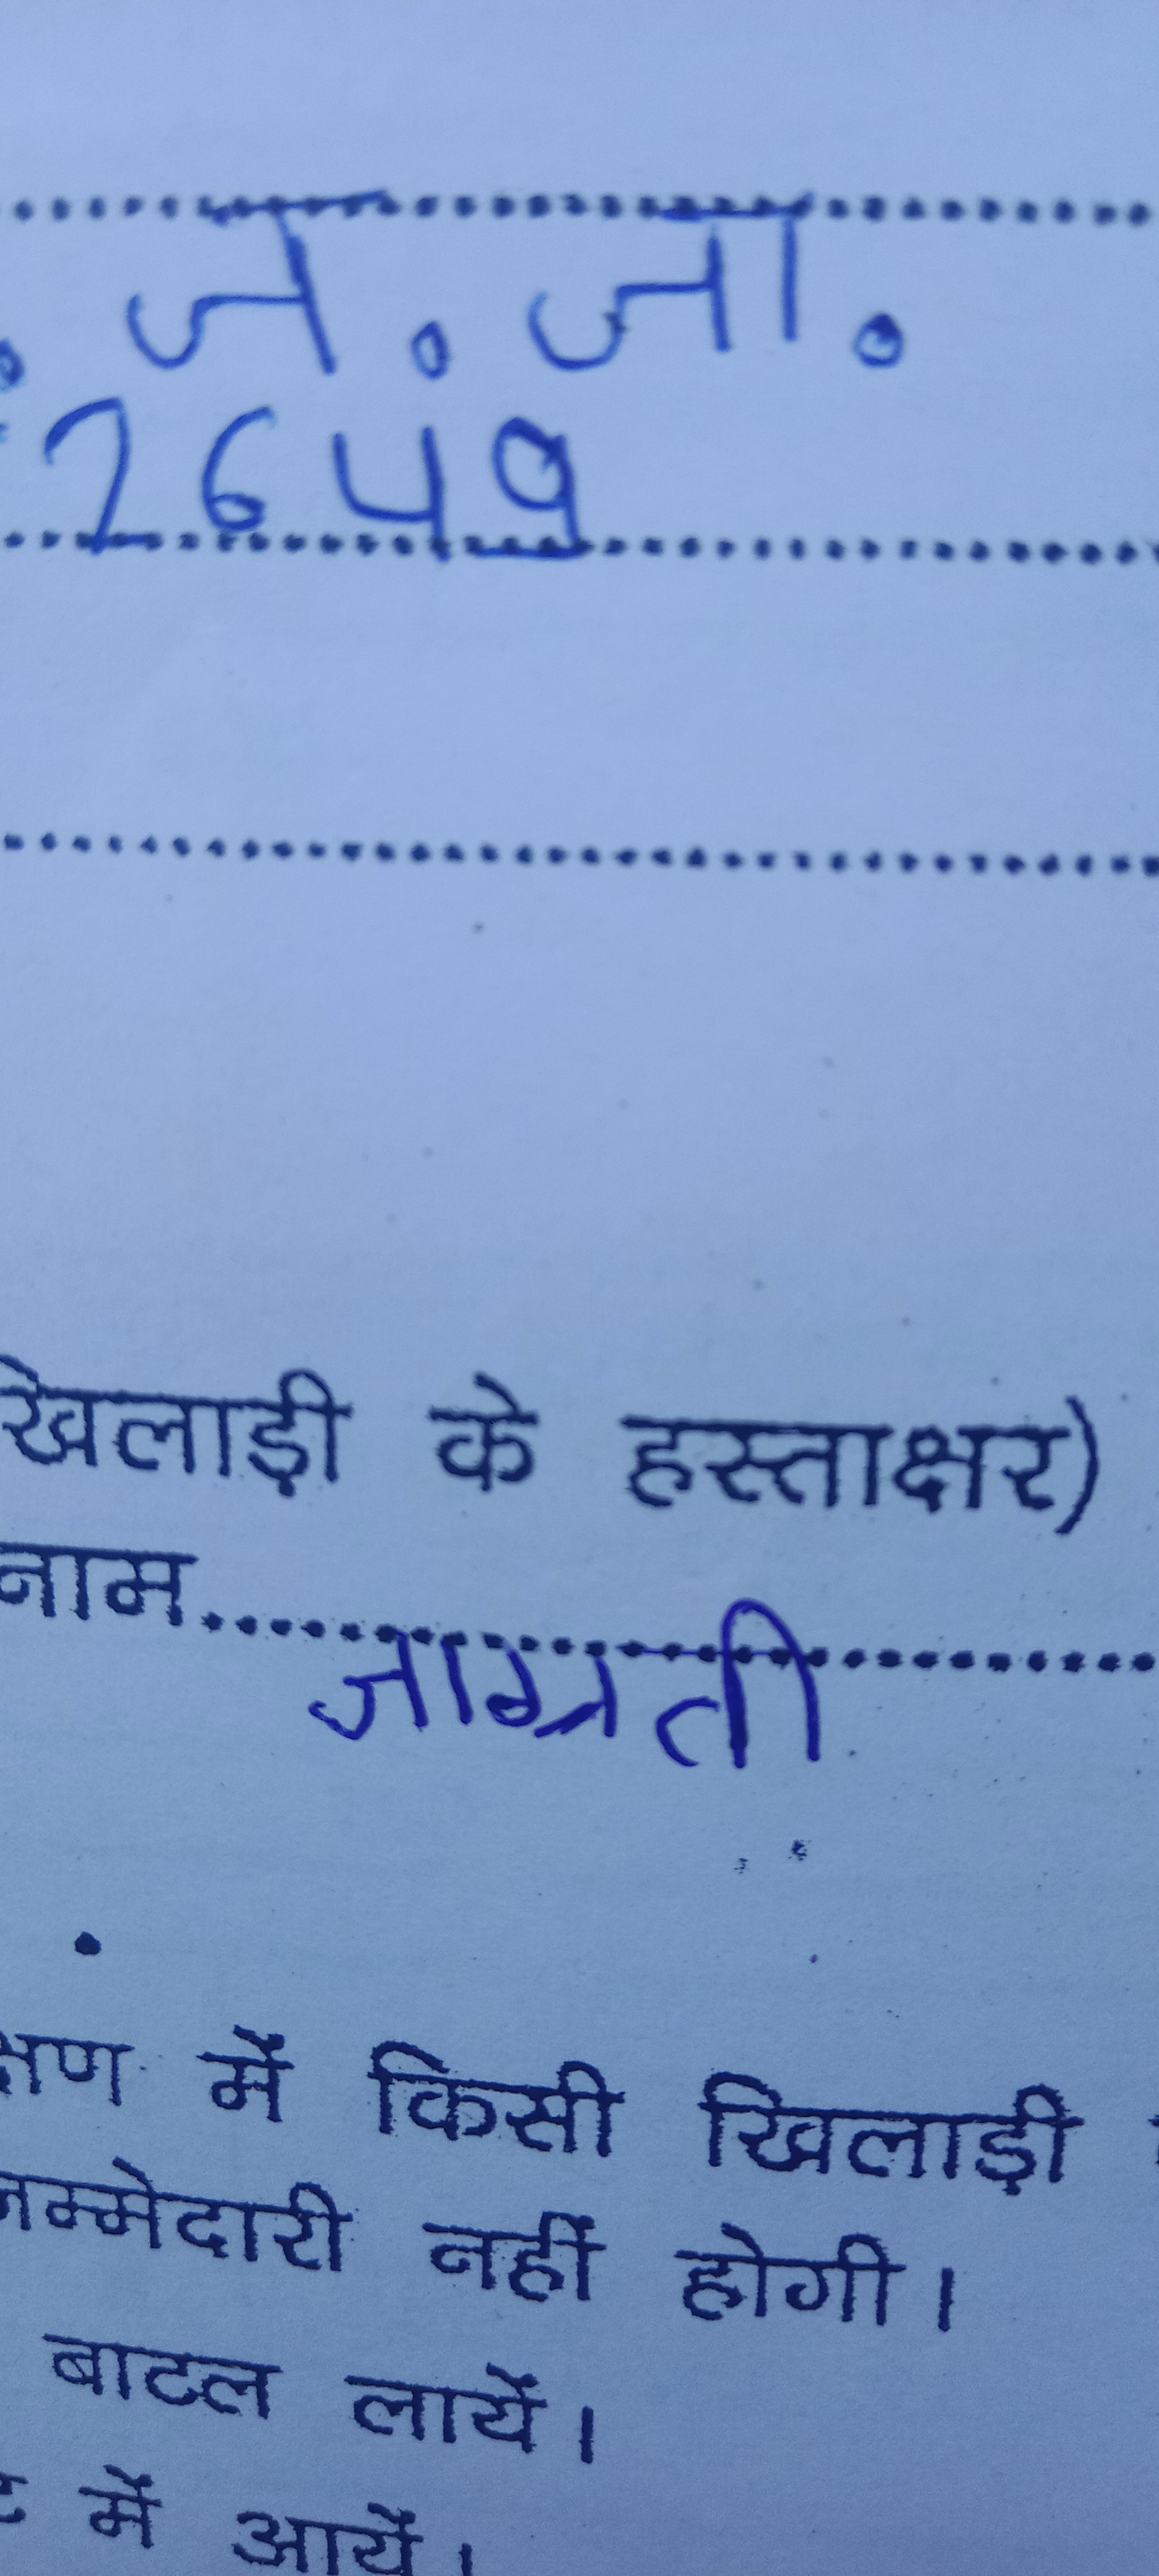 . ज. जा.
2649
खिलाड़ी के हस्ताक्षर)
नाम..............................
जाग्रती
क्षण में किसी खिलाड़ी
जिम्मेदारी नहीं होगी।
बाटल लायें।
में आयें।